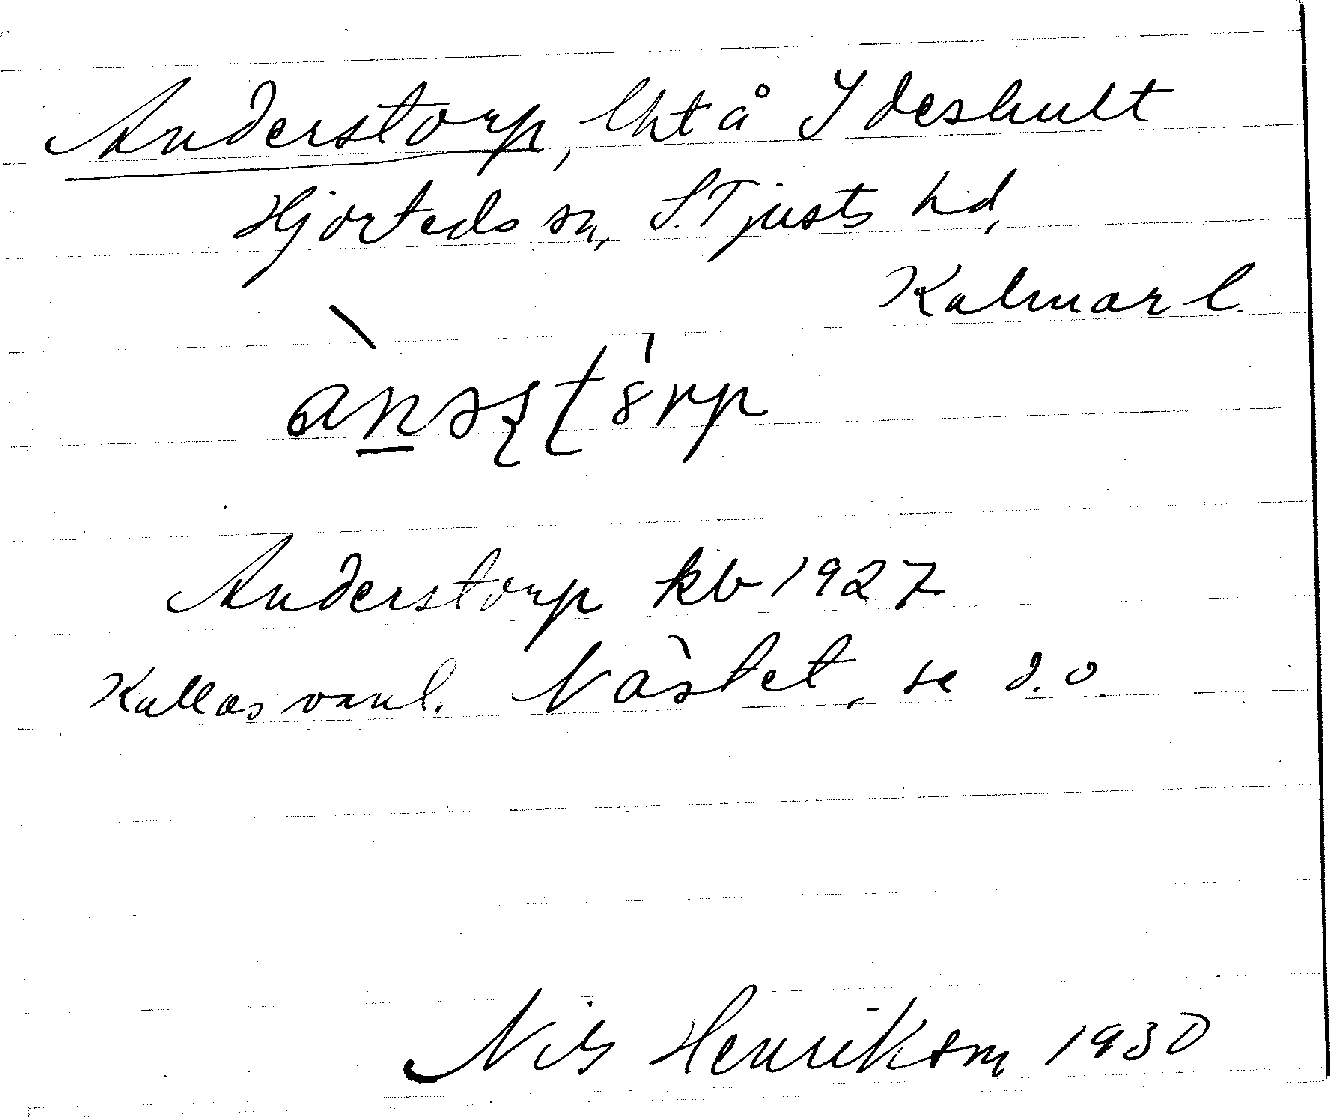 Anderstorp, lht å Ideshult
Hjorteds sn, S. Tjusts hd,
Kalmar l.
Anderstorp kb 1927
Kallas vanl. Nästet, se d.o.
Nils Henrikson 1930